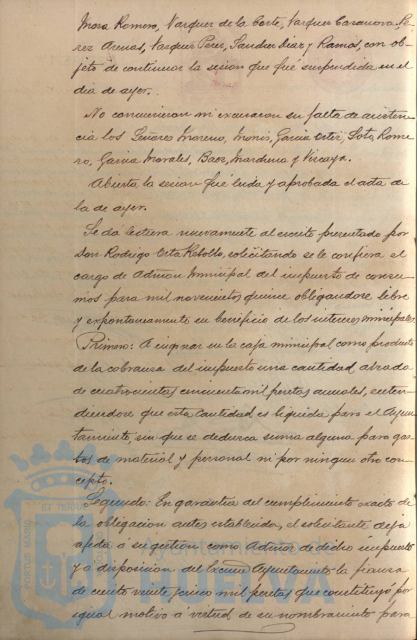 Mora Romero, Vazquez de la Corte, Vazquez Casanova, Pe-
rez Arenas, Vazquez Perez, Sanchez Diaz y Ramos, con ob-
jeto de continuar la sesion que fué suspendida en el
dia de ayer.
No concurrieron ni excusaron su falta de asisten-
cia los Señores Moreno, Monis, Garcia Ortiz, Soto, Rome-
ro, Garcia Morales, Baez, Mardina y Vizcaya.
Abierta la sesion fué leida y aprobada el acta de
la de ayer.
Se dá lectura nuevamente al escrito presentado por
Don Rodrigo Orta Rebollo, solicitando se le confiera el
cargo de Admor. Municipal del impuesto de consu-
mos para mil novecientos quince obligandose libre
y expontaneamente en beneficio de los intereses municipales.
Primero: A ingresar en la caja municipal como producto
de la cobranza del impuesto una cantidad alzada
de cuatrocientas cincuenta mil pesetas anuales, enten-
diendose que esta cantidad es liquida para el Ayun-
tamiento, sin que se deduzca suma alguna para gas-
tos de material y personal ni por ningun otro con-
cepto.
Segundo: En garantia del cumplimiento exacto de
la obligacion antes establecida, el solicitante deja
afecta á su gestion como Admor. de dicho impuesto
y á disposicion del Excmo. Ayuntamiento la fianza
de ciento veinte y cinco mil pesetas que constituyó por
igual motivo á virtud de su nombramiento para
PORTUS MARIS
ET TERRAE
Ayuntamiento de
HUELVA